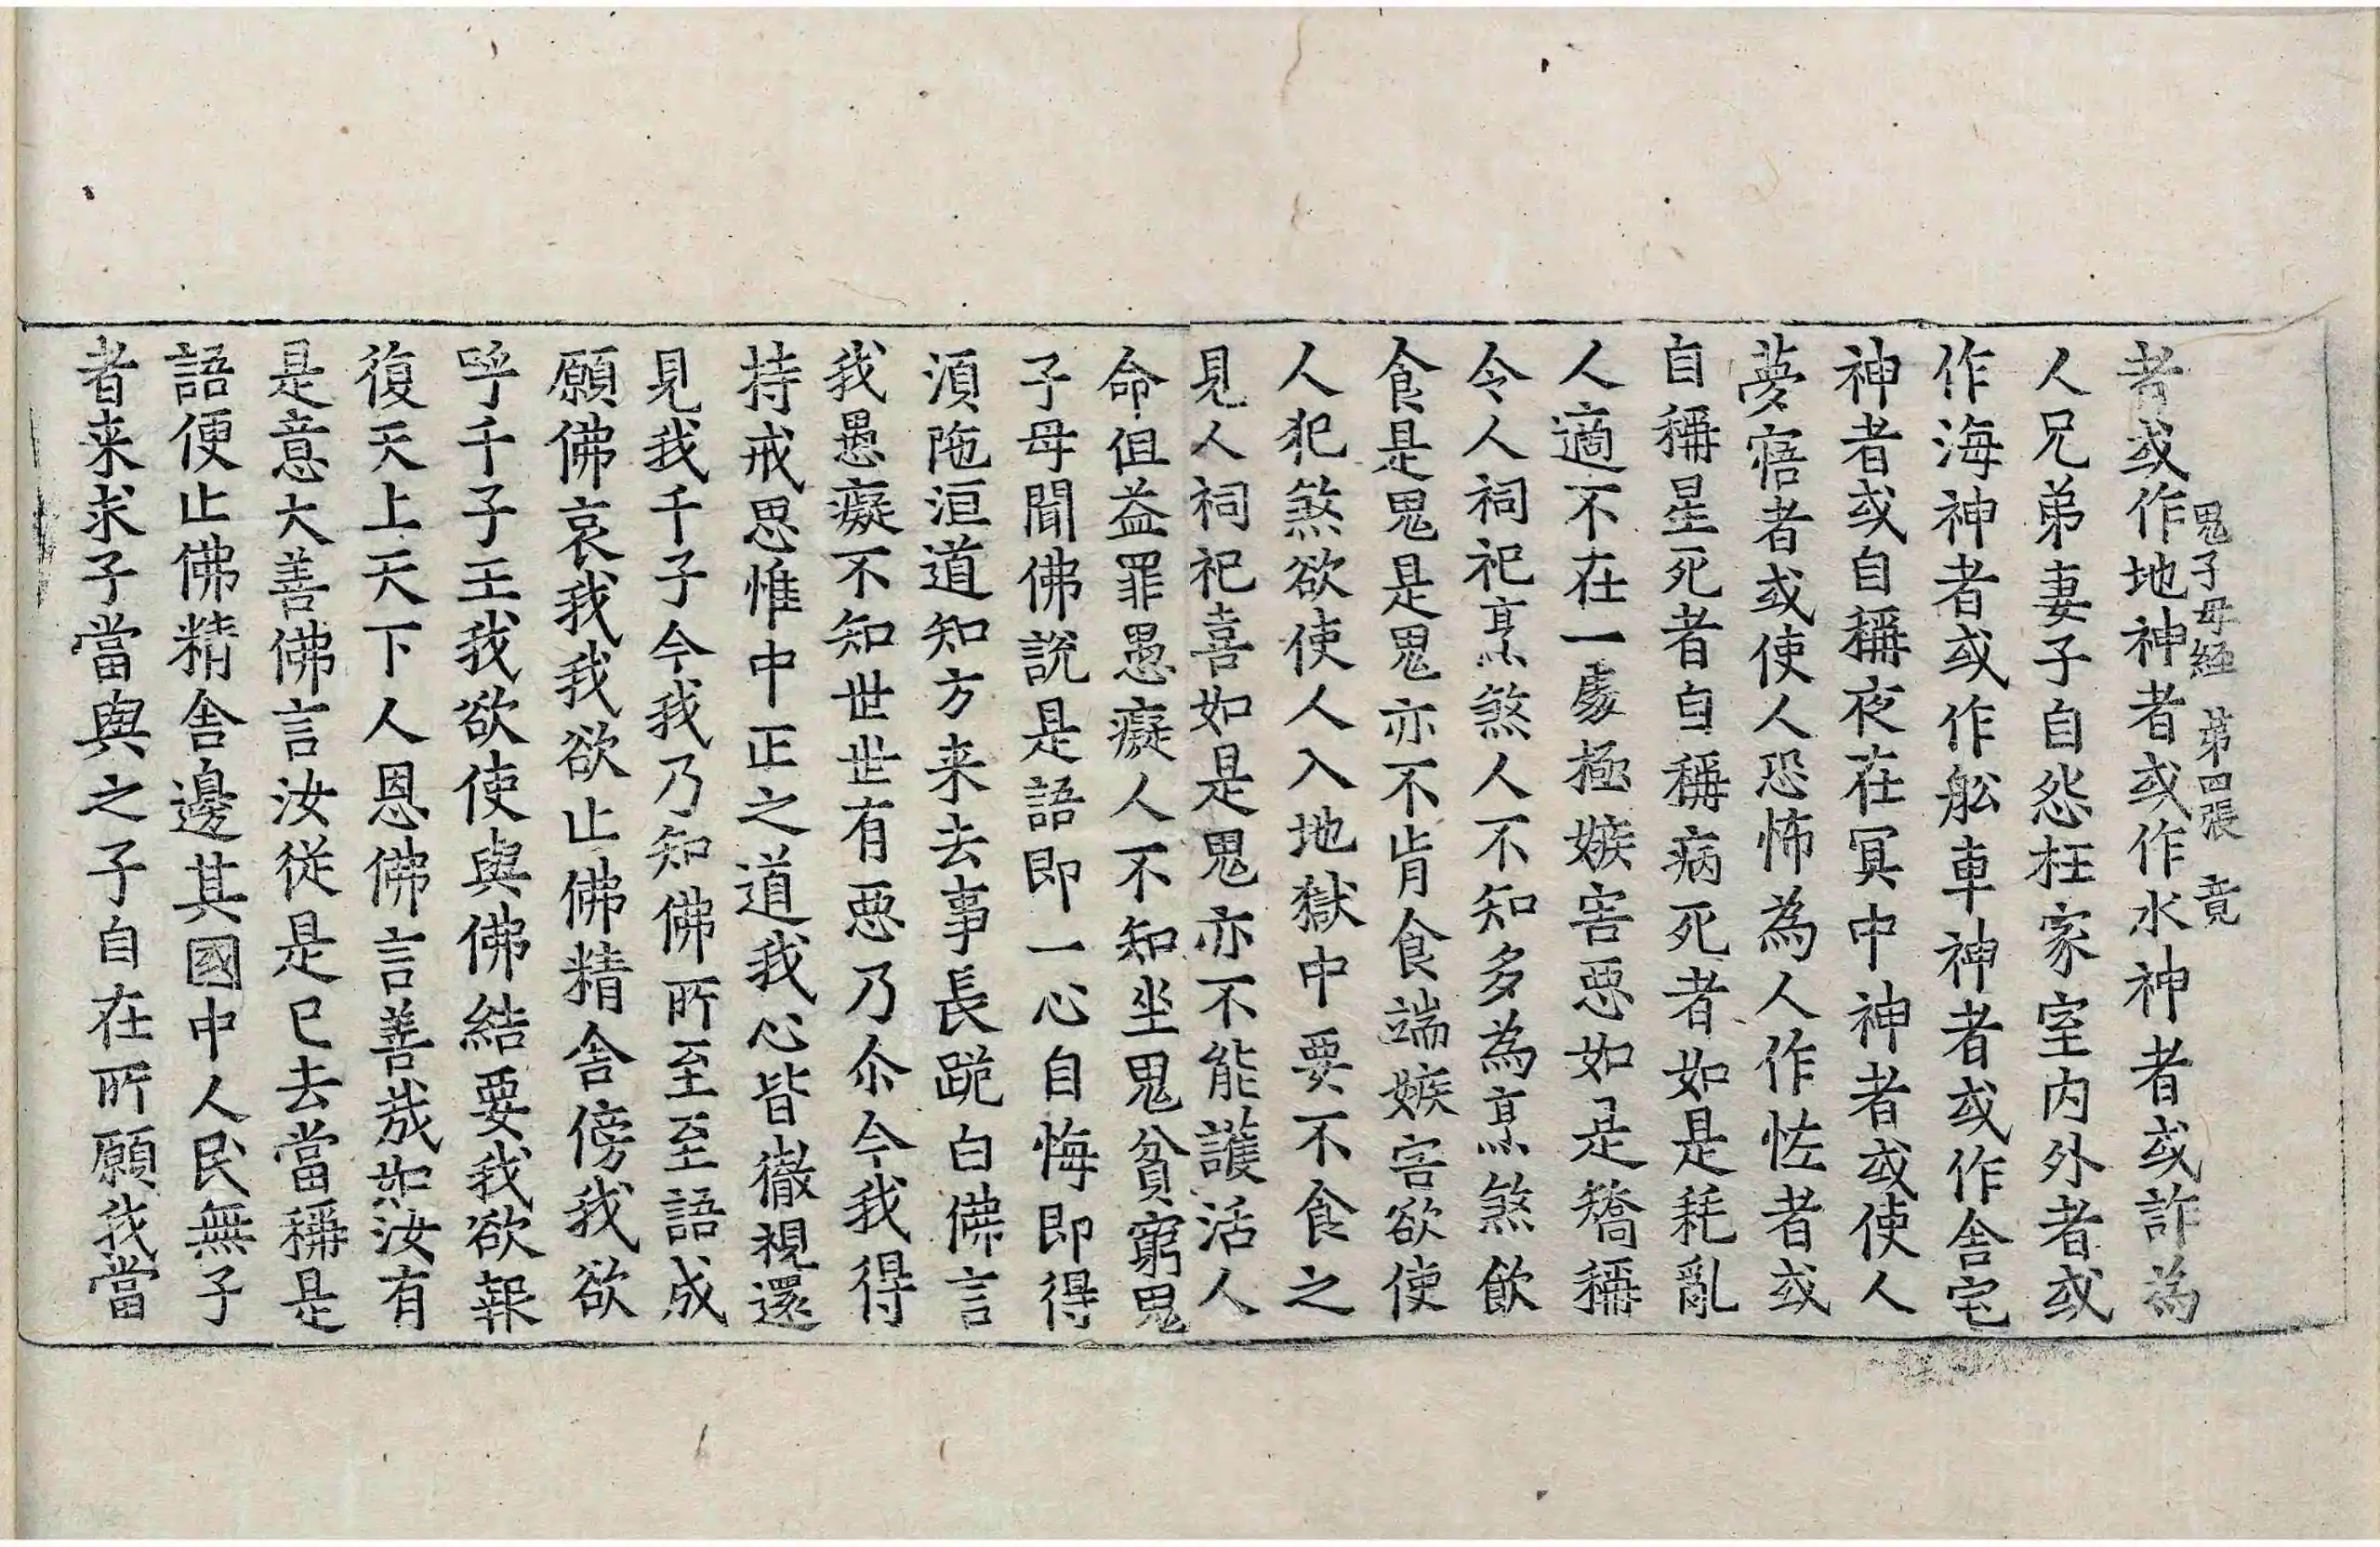 鬼子母経 第四張 竟
者或作地神者或作水神者或詐為
人兄弟妻子自怨枉家室内外者或
作海神者或作舩車神者或作舎宅
神者或自稱夜在冥中神者或使人
夢寤者或使人恐怖為人作恠者或
自稱星死者自稱病死者如是耗亂
人適不在一處極嫉害惡如是矯稱
令人祠祀烹煞人不知多為烹煞飲
食是鬼是鬼亦不肯食端嫉害欲使
人犯煞欲使人入地獄中要不食之
見人祠祀喜如是鬼亦不能護活人
命但益罪愚癡人不知坐鬼貧窮鬼
子母聞佛說是語即一心自悔即得
湏陁洹道知方来去事長跪白佛言
我愚癡不知世世有惡乃尒今我得
持戒思惟中正之道我心皆徹視還
見我千子今我乃知佛所至至語成
願佛哀我我欲止佛精舎傍我欲
呼千子王我欲使與佛結要我欲報
復天上天下人恩佛言善哉如汝有
是意大善佛言汝従是已去當稱是
語便止佛精舎邊其國中人民無子
者来求子當與之子自在所願我當